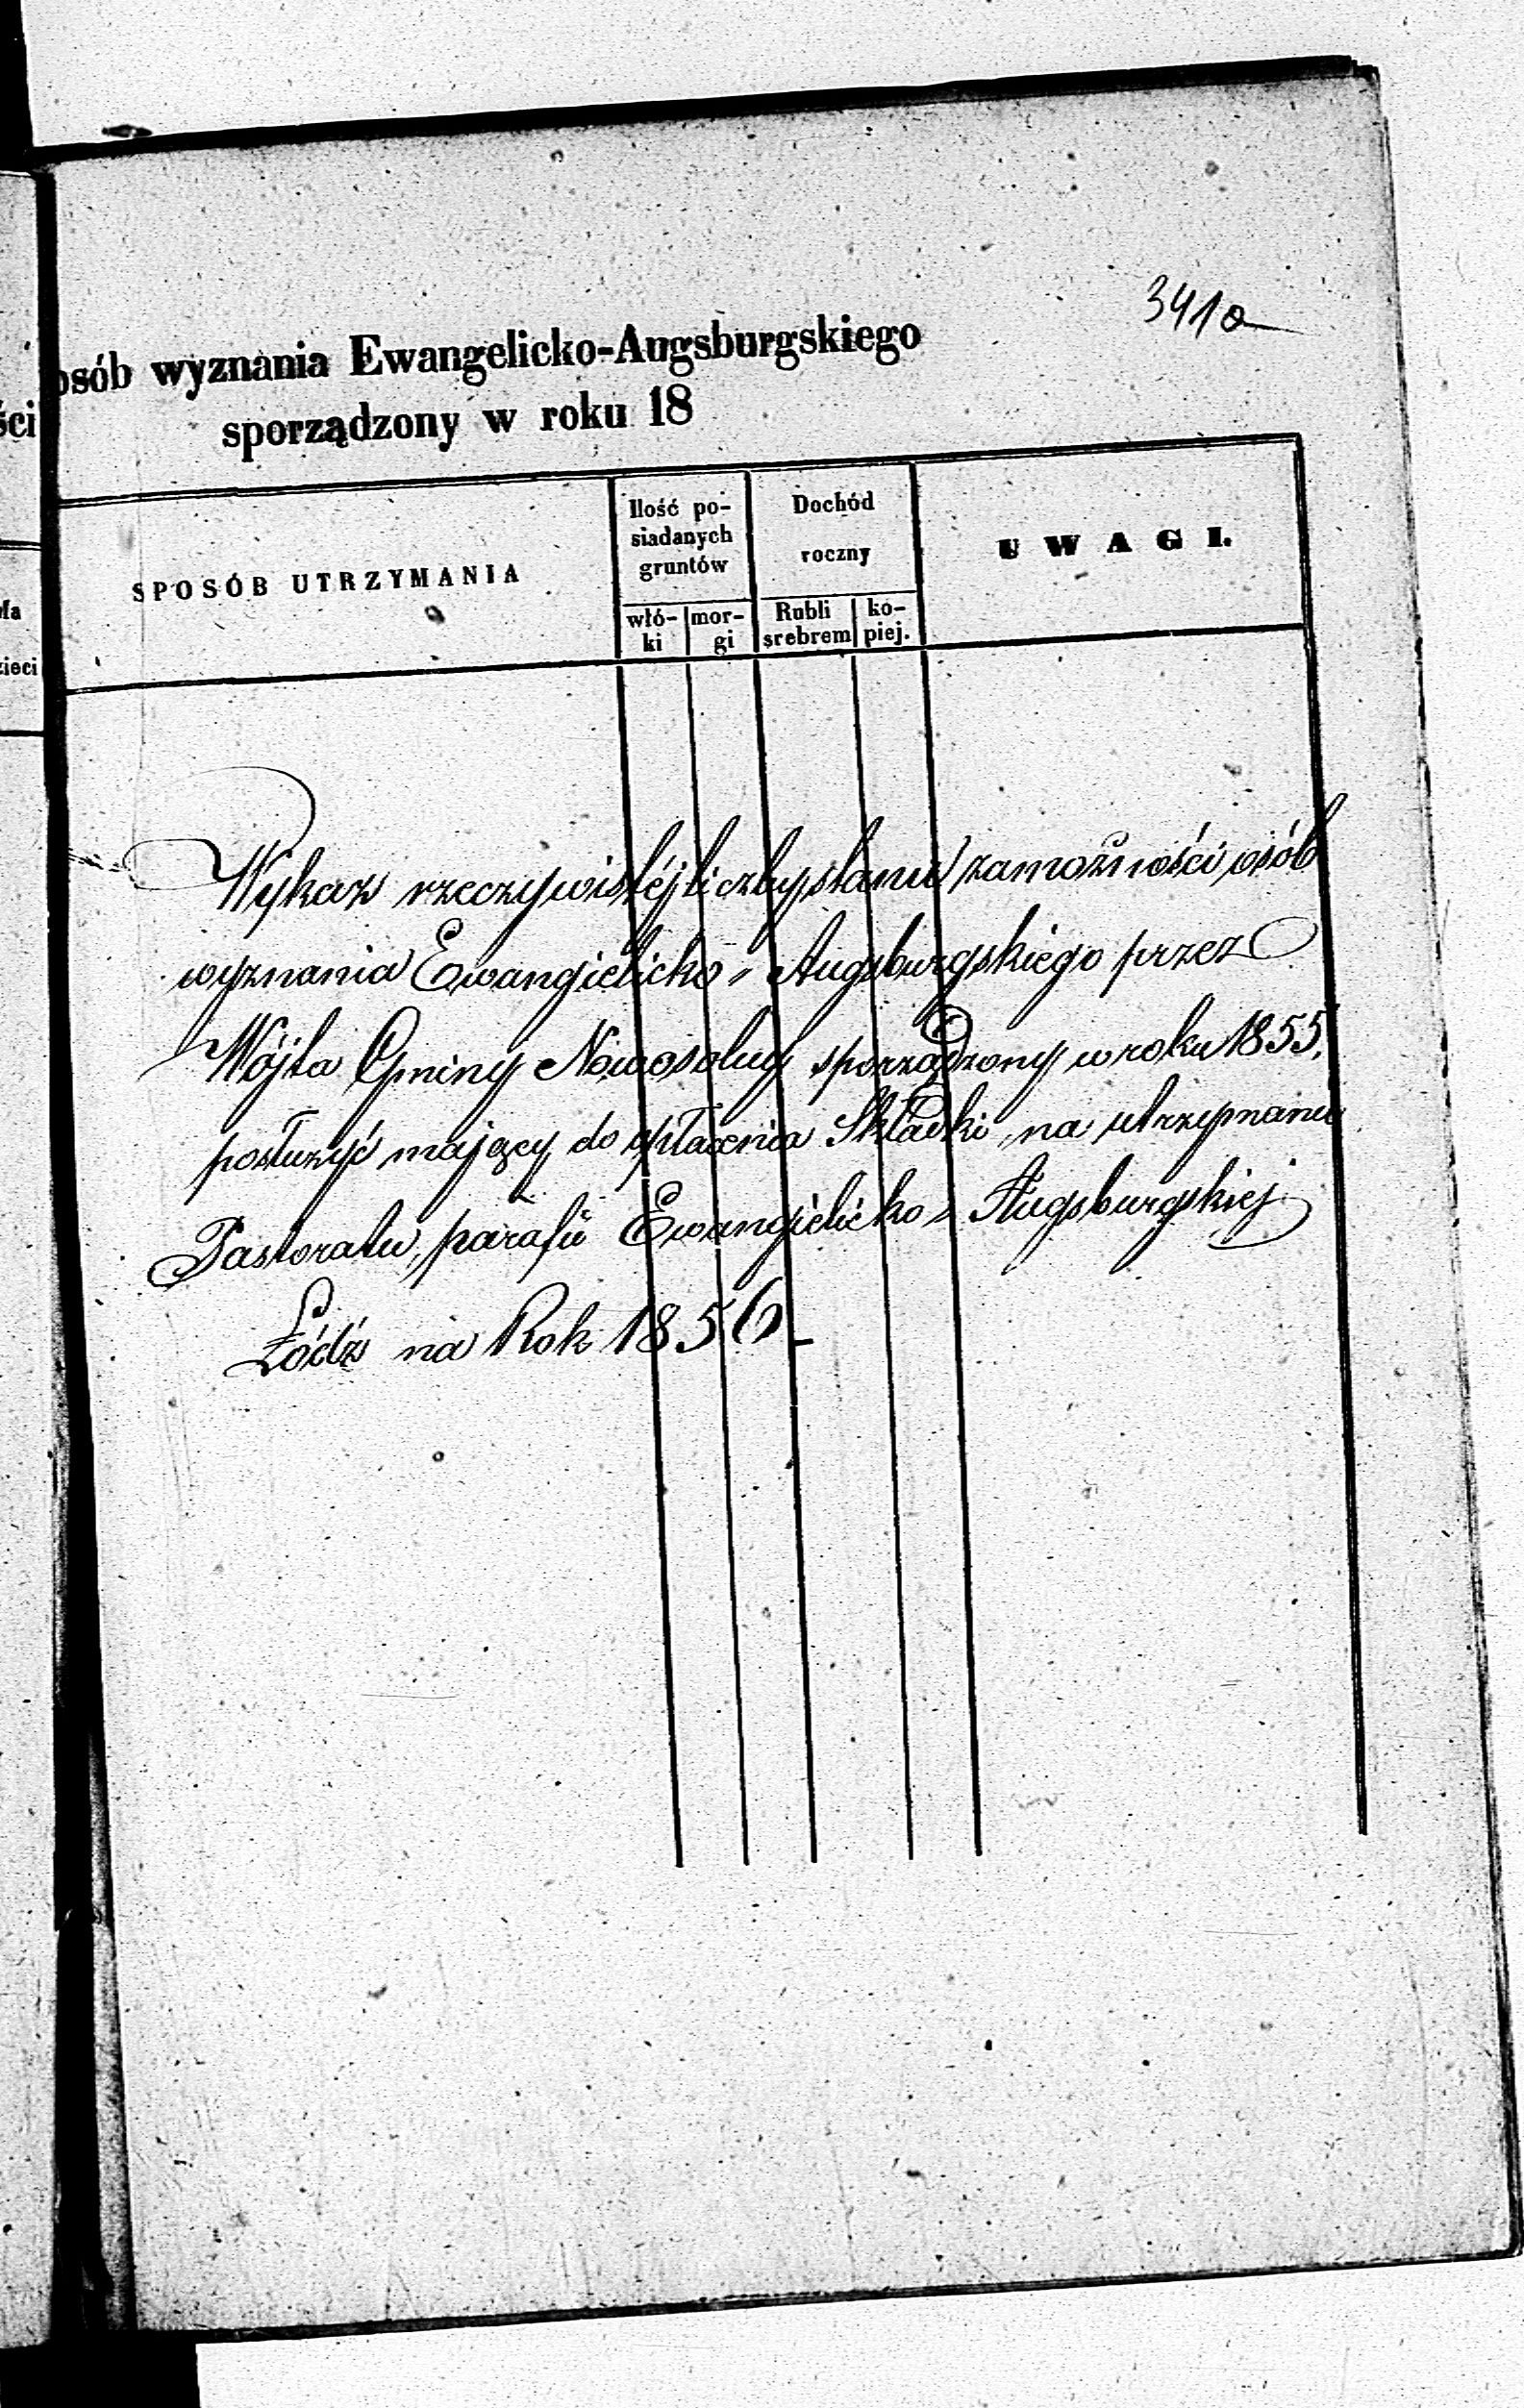 341a
osób wyznania Ewangelicko-Augsburgskiego
ści
sporządzony w roku 18
SPOSÓB UTRZYMANIA
Ilość po-
siadanych
gruntów
włó-
ki
mor-
gi
Dochód
roczny
Rubli
srebrem
ko-
piej.
UWAGI.
Ma
zieci
Wykaz rzeczywistéj liczby stanu zamożności osób
wyznania Ewangielicko-Augsburgskiego przez
Wójta Gminy Nowosolny sporządzony w roku 1855,
posłużyć mający do opłacenia Składki na utrzymanie
Pastoratu, parafii Ewangielicko-Augsburgskiej
Łódź na Rok 1856-